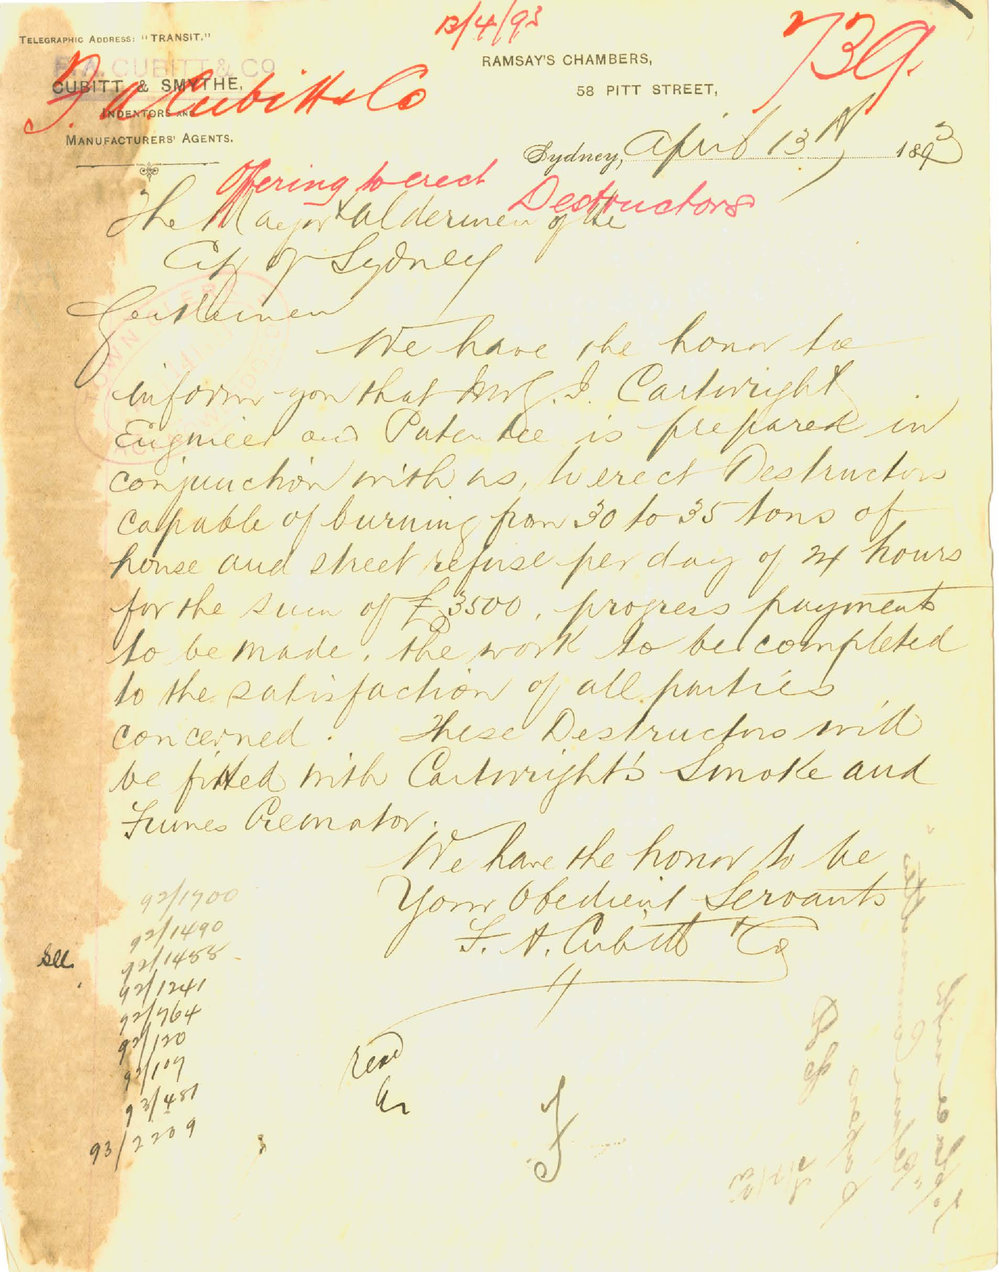 13/4/93
739.
TELEGRAPHIC ADDRESS: "TRANSIT."
F.A. CUBITT & CO
CUBITT & SMYTHE,
F. A. Cubitt & Co
INDENTORS AND
MANUFACTURERS' AGENTS.
RAMSAY'S CHAMBERS,
58 PITT STREET,
Sydney, April 13th 1893
Offering to erect Destructors
The Mayor & Aldermen of the
City of Sydney
Gentlemen
TOWN CLERK
We have the honor to
inform you that Mr J. I. Cartwright
Engineer and Patentee is prepared in
conjunction with us, to erect Destructors
capable of burning from 30 to 35 tons of
house and street refuse per day of 24 hours
for the sum of £3500, progress payments
to be made, the work to be completed
to the satisfaction of all parties
concerned. These Destructors will
be fitted with Cartwright's Smoke and
Fumes Cremator.
We have the honor to be
Your Obedient Servants
F. A. Cubitt & Co
See
92/1700
92/1490
92/1455
92/1241
92/764
92/120
92/109
93/481
93/2209
read